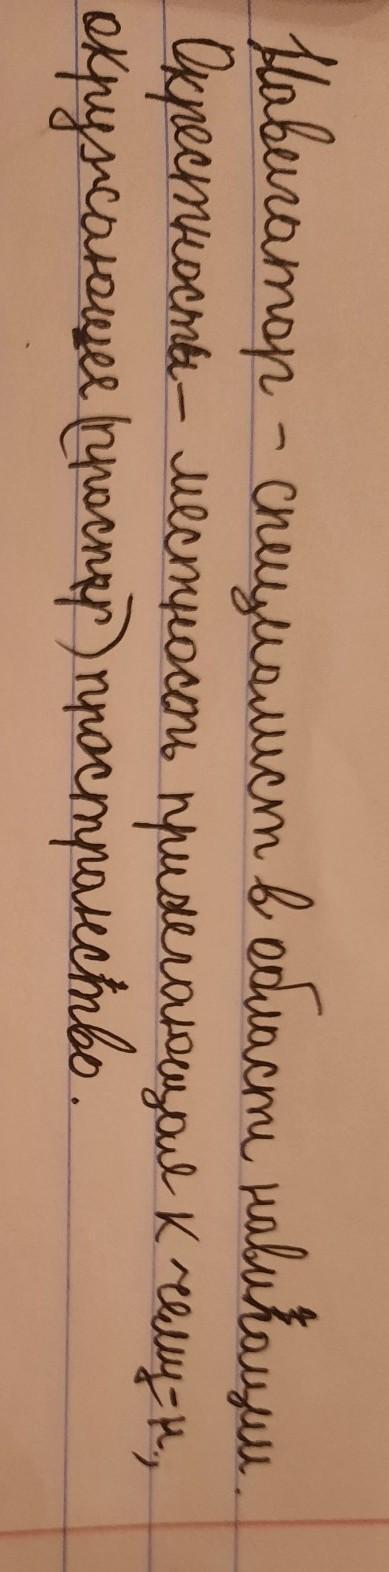 Навигатор - специалист в области навигации.
Окрестность - местность прилегающая к чему-н.,
окружающее (простр) пространство.